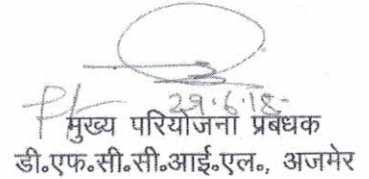 29.6.18
मुख्य परियोजना प्रबंधक
डी०एफ०सी०सी०आई०एल०, अजमेर